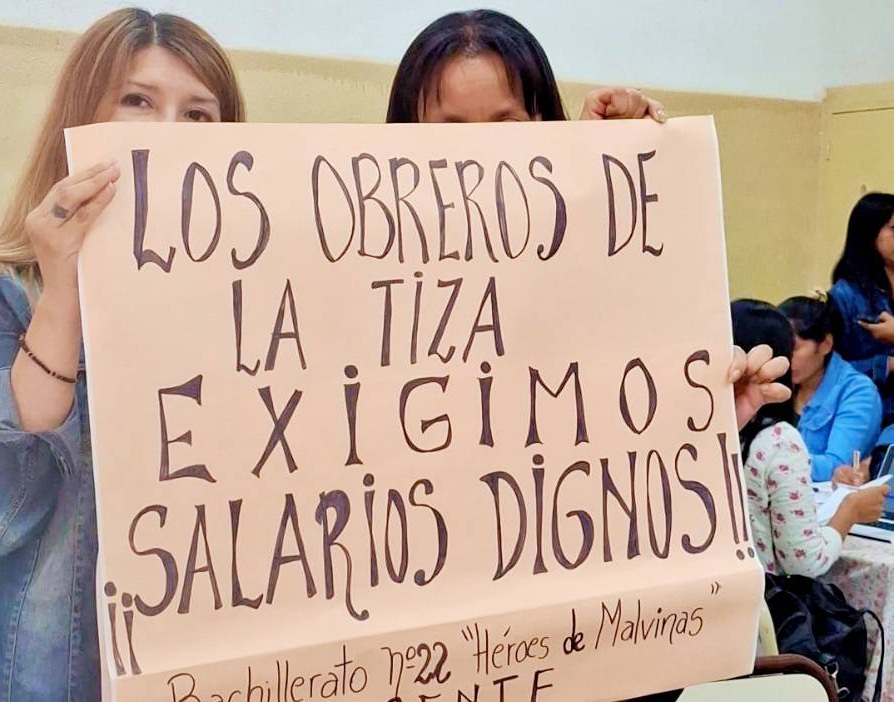 LOS OBREROS DE
LA TIZA
EXIGIMOS
¡¡SALARIOS DIGNOS!!
Bachillerato nº22 "Héroes de Malvinas"